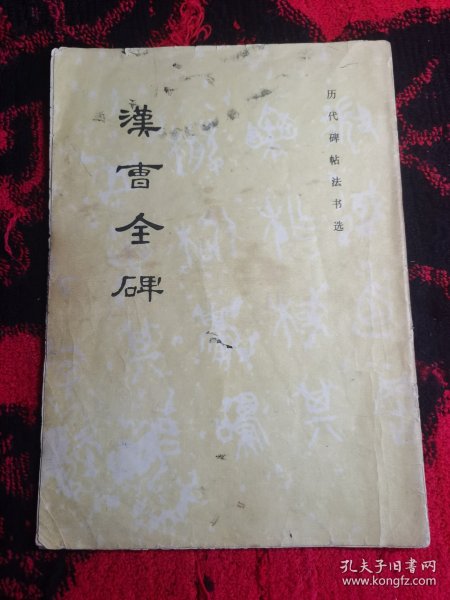 历代碑帖法书选
漢曹全碑
孔夫子旧书网
www.kongfz.com